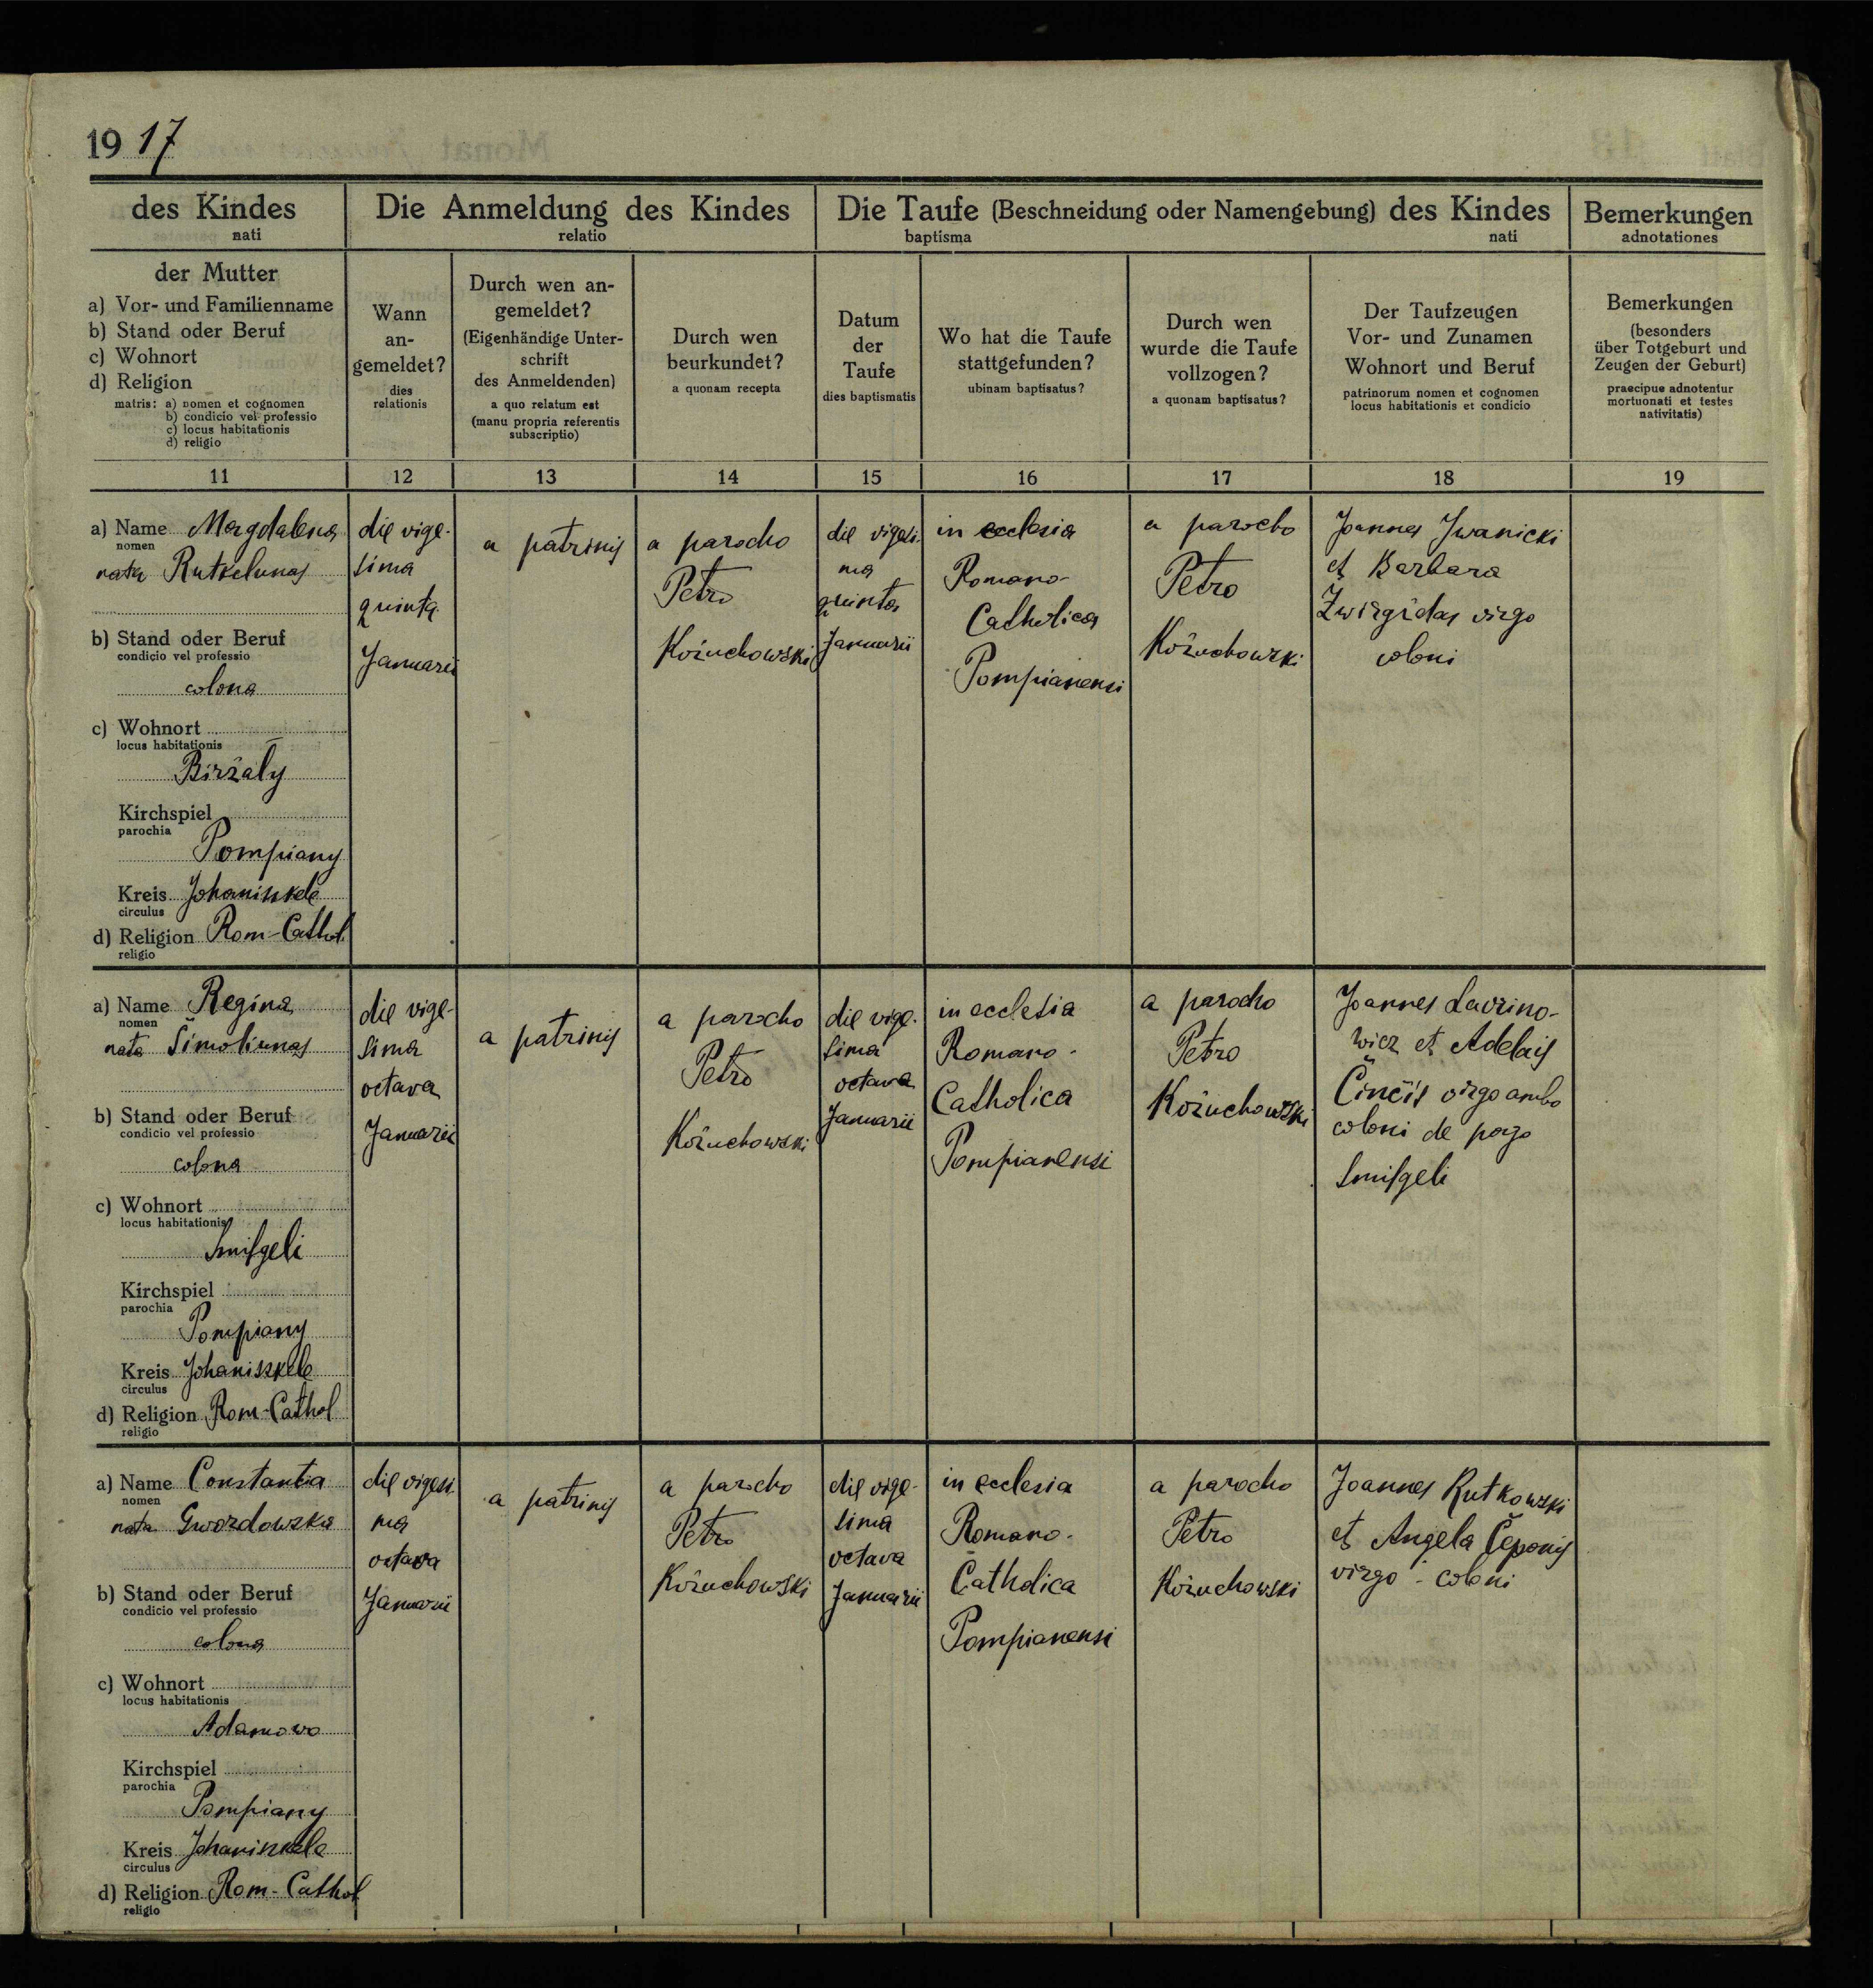 1917
des Kindes
nati
Die Anmeldung des Kindes
relatio
Die Taufe (Beschneidung oder Namengebung) des Kindes
baptisma nati
Bemerkungen
adnotationes
der Mutter
a) Vor- und Familienname
b) Stand oder Beruf
c) Wohnort
d) Religion
matris: a) nomen et cognomen
b) condicio vel professio
c) locus habitationis
d) religio
Wann
an-
gemeldet?
dies
relationis
Durch wen an-
gemeldet?
(Eigenhändige Unter-
schrift
des Anmeldenden)
a quo relatum est
(manu propria referentis
subscriptio)
Durch wen
beurkundet?
a quonam recepta
Datum
der
Taufe
dies baptismatis
Wo hat die Taufe
stattgefunden?
ubinam baptisatus?
Durch wen
wurde die Taufe
vollzogen?
a quonam baptisatus?
Der Taufzeugen
Vor- und Zunamen
Wohnort und Beruf
patrinorum nomen et cognomen
locus habitationis et condicio
Bemerkungen
(besonders
über Totgeburt und
Zeugen der Geburt)
praecipue adnotentur
mortuonati et testes
nativitatis)
11 12 13 14 15 16 17 18 19
a) Name Magdalena
nomen
nata Rutkelunas
b) Stand oder Beruf
condicio vel professio
colona
c) Wohnort
locus habitationis
Biržaly
Kirchspiel
parochia
Pompiany
Kreis Johaniszkele
circulus
d) Religion Rom-Cathol.
religio
die vige-
sima
quinta
Januarii
a patrinis
a parocho
Petro
Kożuchowski
die vigesi-
ma
quinta
Januarii
in ecclesia
Romano-
Catholica
Pompianensi
a parocho
Petro
Kożuchowski
Joannes Iwanicki
et Barbara
Żwirgżdas virgo
coloni
a) Name Regina
nomen
nata Šimoliunas
b) Stand oder Beruf
condicio vel professio
colona
c) Wohnort
locus habitationis
Smilgeli
Kirchspiel
parochia
Pompiany
Kreis Johaniszkele
circulus
d) Religion Rom-Cathol
religio
die vige-
sima
octava
Januarii
a patrinis
a parocho
Petro
Kożuchowski
die vige-
sima
octava
Januarii
in ecclesia
Romano-
Catholica
Pompianensi
a parocho
Petro
Kożuchowski
Joannes Lavrino-
wicz et Adelais
Činčis virgo ambo
coloni de pago
Smilgeli
a) Name Constantia
nomen
nata Gwozdowska
b) Stand oder Beruf
condicio vel professio
colona
c) Wohnort
locus habitationis
Adamowo
Kirchspiel
parochia
Pompiany
Kreis Johaniszkele
circulus
d) Religion Rom-Cathol
religio
die vigesi
ma
octava
Januarii
a patrinis
a parocho
Petro
Kożuchowski
die vige-
sima
octava
Januarii
in ecclesia
Romano-
Catholica
Pompianensi
a parocho
Petro
Kożuchowski
Joannes Rutkowski
et Angela Čeponis
virgo - coloni